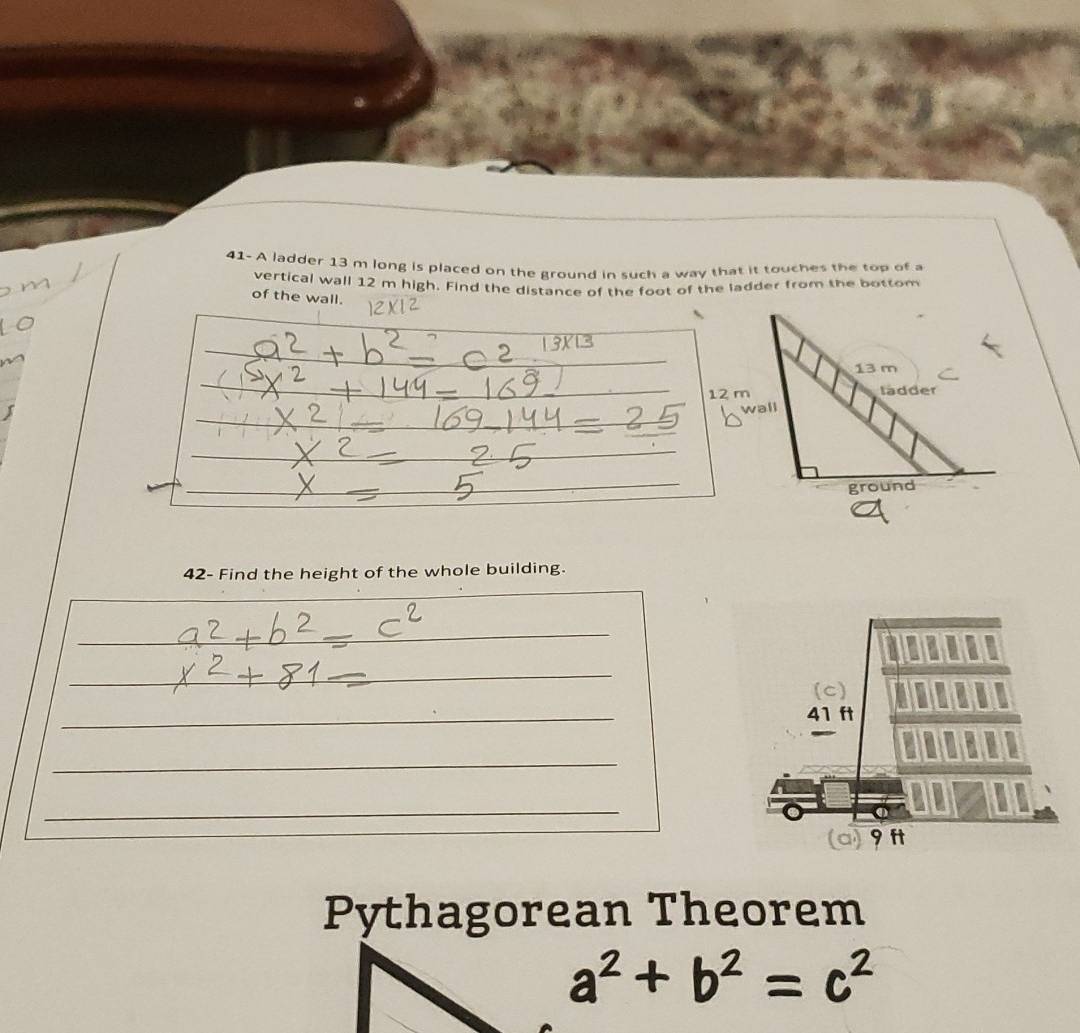 41- A ladder 13 m long is placed on the ground in such a way that it touches the top of a
vertical wall 12 m high. Find the distance of the foot of the ladder from the bottom
of the wall.
12x12
a² + b² = c² 13x13
x² + 144 = 169
x² = 169-144 = 25
x² = 25
x = 5
13 m
c
ladder
12 m
b wall
ground
a
42- Find the height of the whole building.
a² + b² = c²
x² + 81 =
(c)
41 ft
(a) 9 ft
Pythagorean Theorem
a² + b² = c²